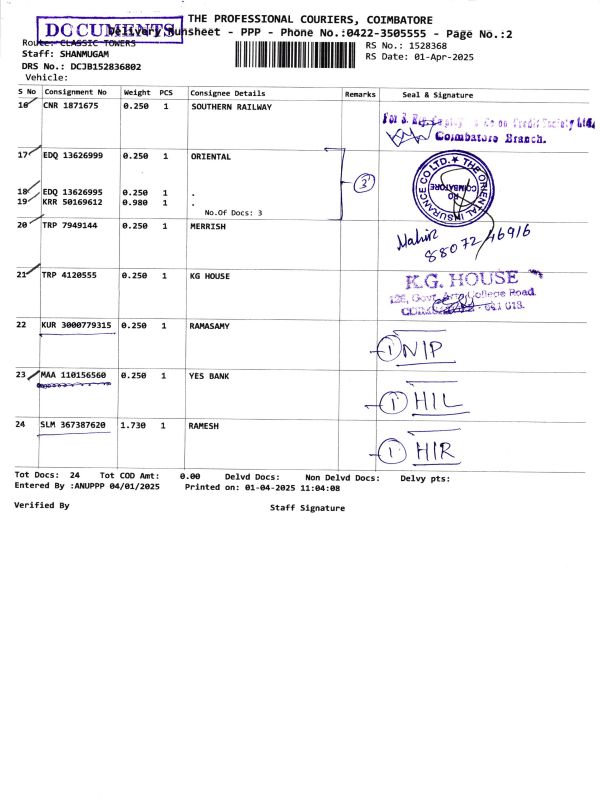 DOCUMENTS
THE PROFESSIONAL COURIERS, COIMBATORE
Delivery Runsheet - PPP - Phone No.:0422-3505555 - Page No.:2
Route: CLASSIC TOWERS
RS No.: 1528368
Staff: SHANMUGAM
RS Date: 01-Apr-2025
DRS No.: DCJB152836802
Vehicle:
S No Consignment No Weight PCS Consignee Details Remarks Seal & Signature
16 CNR 1871675 0.250 1 SOUTHERN RAILWAY
Coimbatore Branch.
17 EDQ 13626999 0.250 1 ORIENTAL
3
18 EDQ 13626995 0.250 1 .
19 KRR 50169612 0.980 1 .
No.Of Docs: 3
THE ORIENTAL INSURANCE CO LTD.
COIMBATORE
20 TRP 7949144 0.250 1 MERRISH
Mahir
88072 46916
21 TRP 4120555 0.250 1 KG HOUSE
K.G. HOUSE
126, Govt. Arts College Road,
22 KUR 3000779315 0.250 1 RAMASAMY
1 N/P
23 MAA 110156560 0.250 1 YES BANK
1 H/L
24 SLM 367387620 1.730 1 RAMESH
1 H/R
Tot Docs: 24 Tot COD Amt: 0.00 Delvd Docs: Non Delvd Docs: Delvy pts:
Entered By :ANUPPP 04/01/2025 Printed on: 01-04-2025 11:04:08
Verified By
Staff Signature